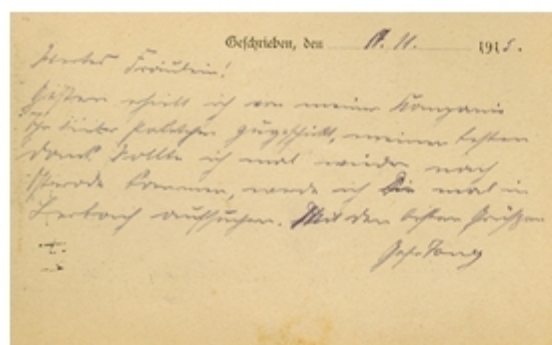 Geschrieben, den 11. 11. 1915.
Wertes Fräulein!
Gestern erhielt ich von meiner Kompanie
Ihr liebes zugeschickt, meinen besten
Dank. Sollte ich mal wieder nach
kommen, werde ich Sie mal in
aufsuchen. Mit den besten Grüßen